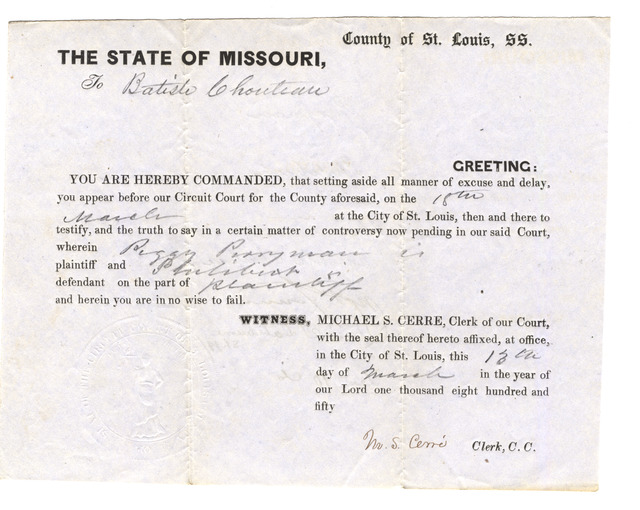 County of St. Louis, SS.
THE STATE OF MISSOURI,
To Batiste Chouteau
GREETING:
YOU ARE HEREBY COMMANDED, that setting aside all manner of excuse and delay,
you appear before our Circuit Court for the County aforesaid, on the 18th
March at the City of St. Louis, then and there to
testify, and the truth to say in a certain matter of controversy now pending in our said Court,
wherein Peggy Perryman is
plaintiff and Philibert is
defendant on the part of plaintiff
and herein you are in no wise to fail.
WITNESS, MICHAEL S. CERRE, Clerk of our Court,
with the seal thereof hereto affixed, at office,
in the City of St. Louis, this 13th
day of March in the year of
our Lord one thousand eight hundred and
fifty
M. S. Cerré Clerk, C. C.